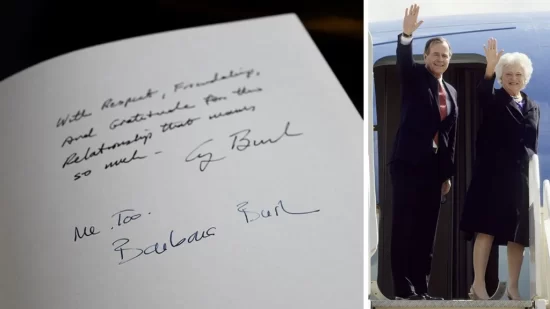 With Respect, Friendship,
And Gratitude for this
Relationship that means
so much –
Gg Bush
Me Too.
Barbara Bush